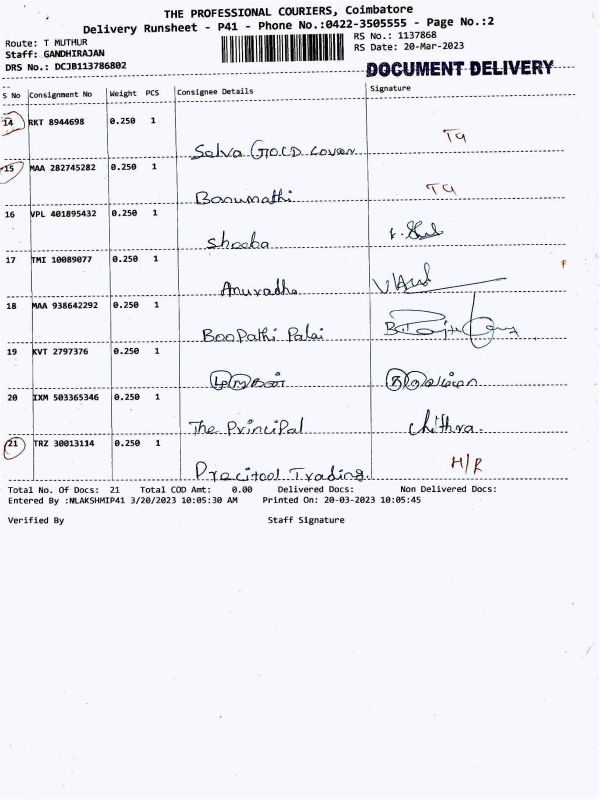 THE PROFESSIONAL COURIERS, Coimbatore
Delivery Runsheet - P41 - Phone No.:0422-3505555 - Page No.:2
Route: T MUTHUR RS No.: 1137868
Staff: GANDHIRAJAN RS Date: 20-Mar-2023
DRS No.: DCJB113786802 DOCUMENT DELIVERY
S No Consignment No Weight PCS Consignee Details Signature
14 RKT 8944698 0.250 1
Selva GOLD Covan
15 MAA 282745282 0.250 1
Banumathi
16 VPL 401895432 0.250 1
Shooba
17 TMI 10089077 0.250 1
Anuradha
18 MAA 938642292 0.250 1
BooPathi Palai
19 KVT 2797376 0.250 1
20 IXM 503365346 0.250 1
The Principal chithra.
21 TRZ 30013114 0.250 1
Precitool Trading. H/R
Total No. Of Docs: 21 Total COD Amt: 0.00 Delivered Docs: Non Delivered Docs:
Entered By :NLAKSHMIP41 3/20/2023 10:05:30 AM Printed On: 20-03-2023 10:05:45
Verified By Staff Signature